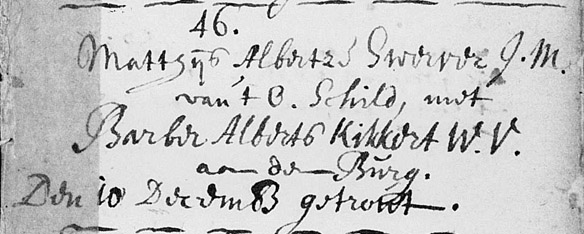 46.
Matthÿs Albertze Swerver J. M.
van't O. Schild, met
Barber Alberts Kikkert W. V.
aan den Burg.
Den 10 DecemB getrout.